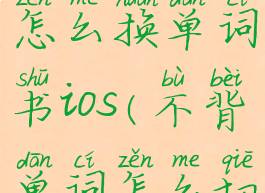 zěn me huàn dān cí
怎么换单词
shū bù bèi
书ios(不背
dān cí zěn me qiē
单词怎么切